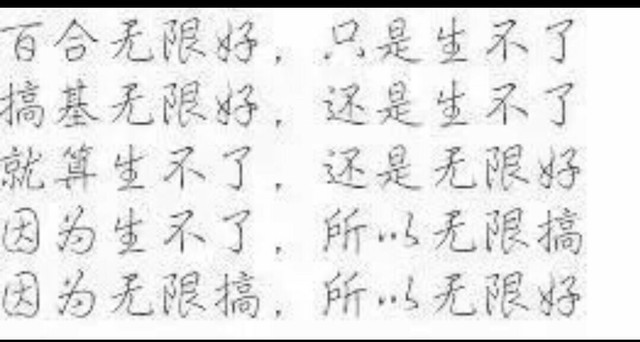 百合无限好，只是生不了
搞基无限好，还是生不了
就算生不了，还是无限好
因为生不了，所以无限搞
因为无限搞，所以无限好